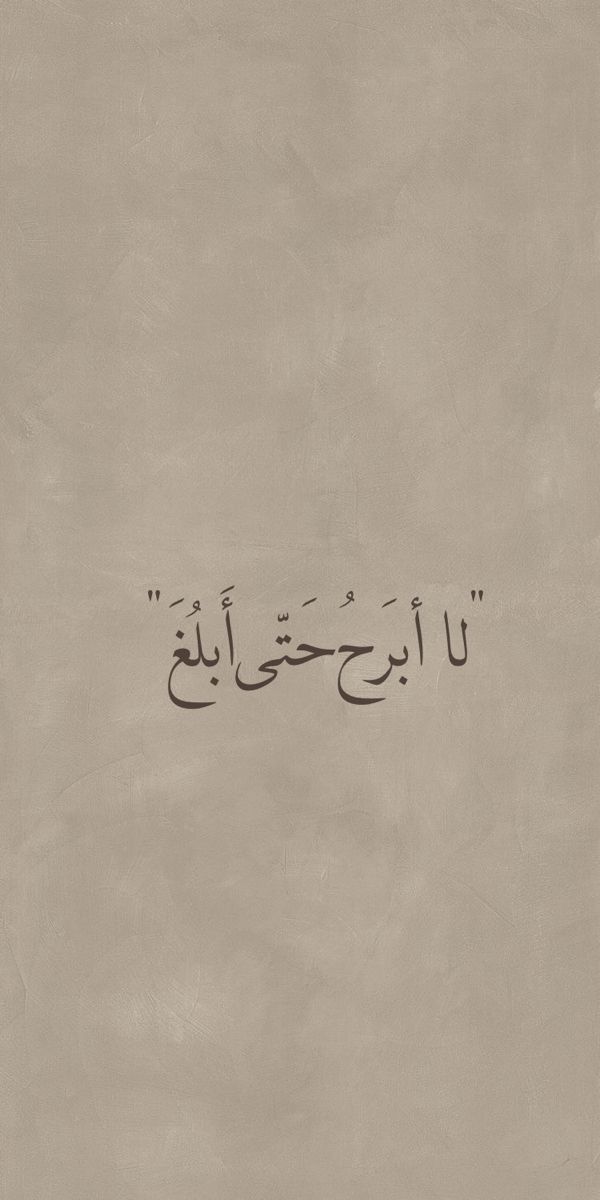 "لا أبرَحُ حَتّى أَبلُغَ"